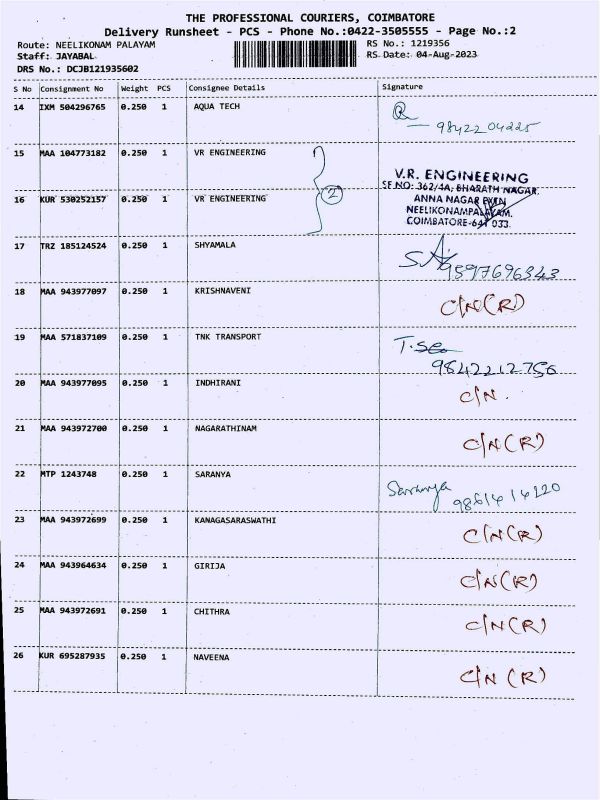 THE PROFESSIONAL COURIERS, COIMBATORE
Delivery Runsheet - PCS - Phone No.:0422-3505555 - Page No.:2
Route: NEELIKONAM PALAYAM RS No.: 1219356
Staff: JAYABAL RS Date: 04-Aug-2023
DRS No.: DCJB121935602
S No Consignment No Weight PCS Consignee Details Signature
14 IXM 504296765 0.250 1 AQUA TECH
9842204225
15 MAA 104773182 0.250 1 VR ENGINEERING
2
V.R. ENGINEERING
SF.NO: 362/4A, BHARATH NAGAR,
16 KUR 530252157 0.250 1 VR ENGINEERING
ANNA NAGAR EXTN
NEELIKONAMPALAYAM,
COIMBATORE-641 033.
17 TRZ 185124524 0.250 1 SHYAMALA
9597696343
18 MAA 943977097 0.250 1 KRISHNAVENI C/N(R)
19 MAA 571837109 0.250 1 TNK TRANSPORT
9842212756
20 MAA 943977095 0.250 1 INDHIRANI C/N.
21 MAA 943972700 0.250 1 NAGARATHINAM C/N(R)
22 MTP 1243748 0.250 1 SARANYA Saranya
23 MAA 943972699 0.250 1 KANAGASARASWATHI C/N(R)
24 MAA 943964634 0.250 1 GIRIJA C/N(R)
25 MAA 943972691 0.250 1 CHITHRA C/N(R)
26 KUR 695287935 0.250 1 NAVEENA C/N(R)